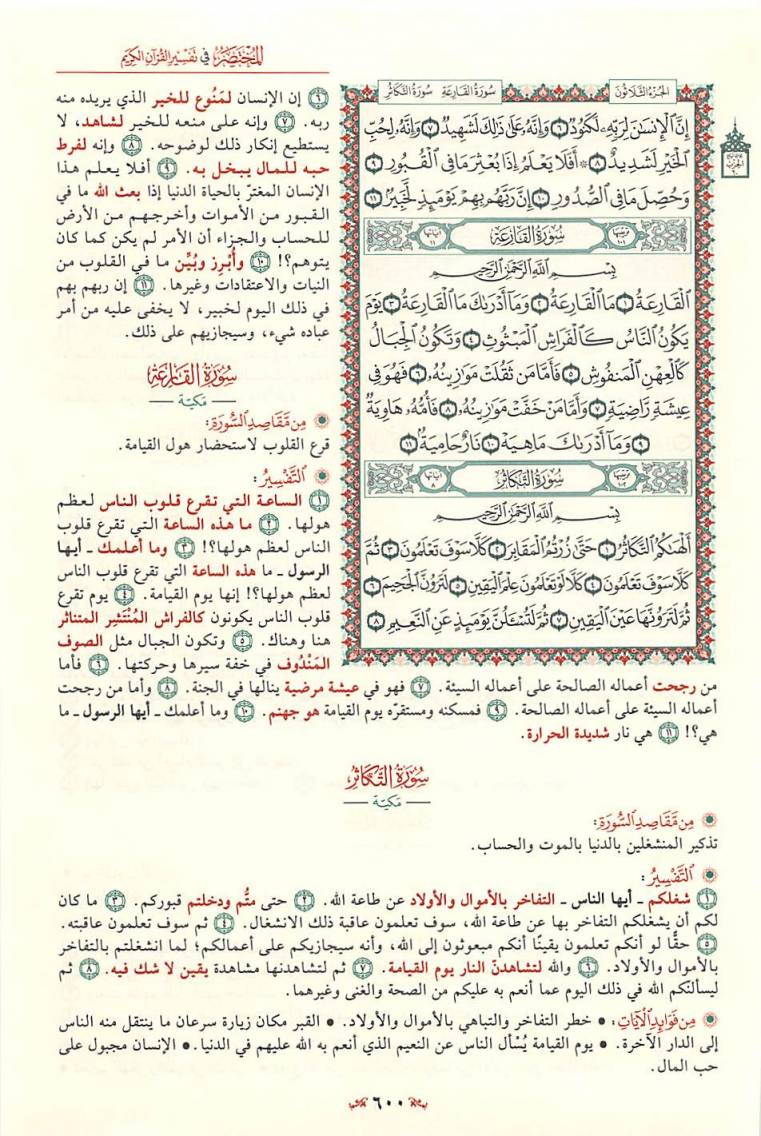 المختصر في تفسير القرآن الكريم
الجزء الثلاثون
سورة القارعة سورة التكاثر
إِنَّ الْإِنسَانَ لِرَبِّهِ لَكَنُودٌ ٦ وَإِنَّهُ عَلَىٰ ذَٰلِكَ لَشَهِيدٌ ٧ وَإِنَّهُ لِحُبِّ
الْخَيْرِ لَشَدِيدٌ ٨ ۞ أَفَلَا يَعْلَمُ إِذَا بُعْثِرَ مَا فِي الْقُبُورِ ٩
وَحُصِّلَ مَا فِي الصُّدُورِ ١٠ إِنَّ رَبَّهُم بِهِمْ يَوْمَئِذٍ لَّخَبِيرٌ ١١
ترتيبها ١٠١ سُورَةُ الْقَارِعَةِ آياتها ١١
بِسْمِ اللَّهِ الرَّحْمَٰنِ الرَّحِيمِ
الْقَارِعَةُ ١ مَا الْقَارِعَةُ ٢ وَمَا أَدْرَاكَ مَا الْقَارِعَةُ ٣ يَوْمَ
يَكُونُ النَّاسُ كَالْفَرَاشِ الْمَبْثُوثِ ٤ وَتَكُونُ الْجِبَالُ
كَالْعِهْنِ الْمَنفُوشِ ٥ فَأَمَّا مَن ثَقُلَتْ مَوَازِينُهُ ٦ فَهُوَ فِي
عِيشَةٍ رَّاضِيَةٍ ٧ وَأَمَّا مَنْ خَفَّتْ مَوَازِينُهُ ٨ فَأُمُّهُ هَاوِيَةٌ
٩ وَمَا أَدْرَاكَ مَا هِيَهْ ١٠ نَارٌ حَامِيَةٌ ١١
ترتيبها ١٠٢ سُورَةُ التَّكَاثُرِ آياتها ٨
بِسْمِ اللَّهِ الرَّحْمَٰنِ الرَّحِيمِ
أَلْهَاكُمُ التَّكَاثُرُ ١ حَتَّىٰ زُرْتُمُ الْمَقَابِرَ ٢ كَلَّا سَوْفَ تَعْلَمُونَ ٣ ثُمَّ
كَلَّا سَوْفَ تَعْلَمُونَ ٤ كَلَّا لَوْ تَعْلَمُونَ عِلْمَ الْيَقِينِ ٥ لَتَرَوُنَّ الْجَحِيمَ ٦
ثُمَّ لَتَرَوُنَّهَا عَيْنَ الْيَقِينِ ٧ ثُمَّ لَتُسْأَلُنَّ يَوْمَئِذٍ عَنِ النَّعِيمِ ٨
٦ إن الإنسان لمَنُوع للخير الذي يريده منه
ربه. ٧ وإنه على منعه للخير لشاهد، لا
يستطيع إنكار ذلك لوضوحه. ٨ وإنه لفرط
حبه للمال يبخل به. ٩ أفلا يعلم هذا
الإنسان المغترّ بالحياة الدنيا إذا بعث الله ما في
القبور من الأموات وأخرجهم من الأرض
للحساب والجزاء أن الأمر لم يكن كما كان
يتوهم؟! ١٠ وأُبْرِز وبُيِّن ما في القلوب من
النيات والاعتقادات وغيرها. ١١ إن ربهم بهم
في ذلك اليوم لخبير، لا يخفى عليه من أمر
عباده شيء، وسيجازيهم على ذلك.
سُورَةُ الْقَارِعَةِ
مَكيّة
مِن مَّقَاصِدِ السُّورَةِ:
قرع القلوب لاستحضار هول القيامة.
التَّفْسِيرُ:
١ الساعة التي تقرع قلوب الناس لعظم
هولها. ٢ ما هذه الساعة التي تقرع قلوب
الناس لعظم هولها؟! ٣ وما أعلمك ـ أيها
الرسول ـ ما هذه الساعة التي تقرع قلوب الناس
لعظم هولها؟! إنها يوم القيامة. ٤ يوم تقرع
قلوب الناس يكونون كالفراش المُنْتَشِر المتناثر
هنا وهناك. ٥ وتكون الجبال مثل الصوف
المَنْدُوف في خفة سيرها وحركتها. ٦ فأما
من رجحت أعماله الصالحة على أعماله السيئة. ٧ فهو في عيشة مرضية ينالها في الجنة. ٨ وأما من رجحت
أعماله السيئة على أعماله الصالحة. ٩ فمسكنه ومستقرّه يوم القيامة هو جهنم. ١٠ وما أعلمك ـ أيها الرسول ـ ما
هي؟! ١١ هي نار شديدة الحرارة.
سُورَةُ التَّكَاثُرِ
مَكيّة
مِن مَّقَاصِدِ السُّورَةِ:
تذكير المنشغلين بالدنيا بالموت والحساب.
التَّفْسِيرُ:
١ شغلكم ـ أيها الناس ـ التفاخر بالأموال والأولاد عن طاعة الله. ٢ حتى متُّم ودخلتم قبوركم. ٣ ما كان
لكم أن يشغلكم التفاخر بها عن طاعة الله، سوف تعلمون عاقبة ذلك الانشغال. ٤ ثم سوف تعلمون عاقبته.
٥ حقًّا لو أنكم تعلمون يقينًا أنكم مبعوثون إلى الله، وأنه سيجازيكم على أعمالكم؛ لما انشغلتم بالتفاخر
بالأموال والأولاد. ٦ والله لتشاهدنّ النار يوم القيامة. ٧ ثم لتشاهدنها مشاهدة يقين لا شك فيه. ٨ ثم
ليسألنّكم الله في ذلك اليوم عما أنعم به عليكم من الصحة والغنى وغيرهما.
مِن فَوَائِدِ الْآيَاتِ: • خطر التفاخر والتباهي بالأموال والأولاد. • القبر مكان زيارة سرعان ما ينتقل منه الناس
إلى الدار الآخرة. • يوم القيامة يُسْأل الناس عن النعيم الذي أنعم به الله عليهم في الدنيا. • الإنسان مجبول على
حب المال.
٦٠٠